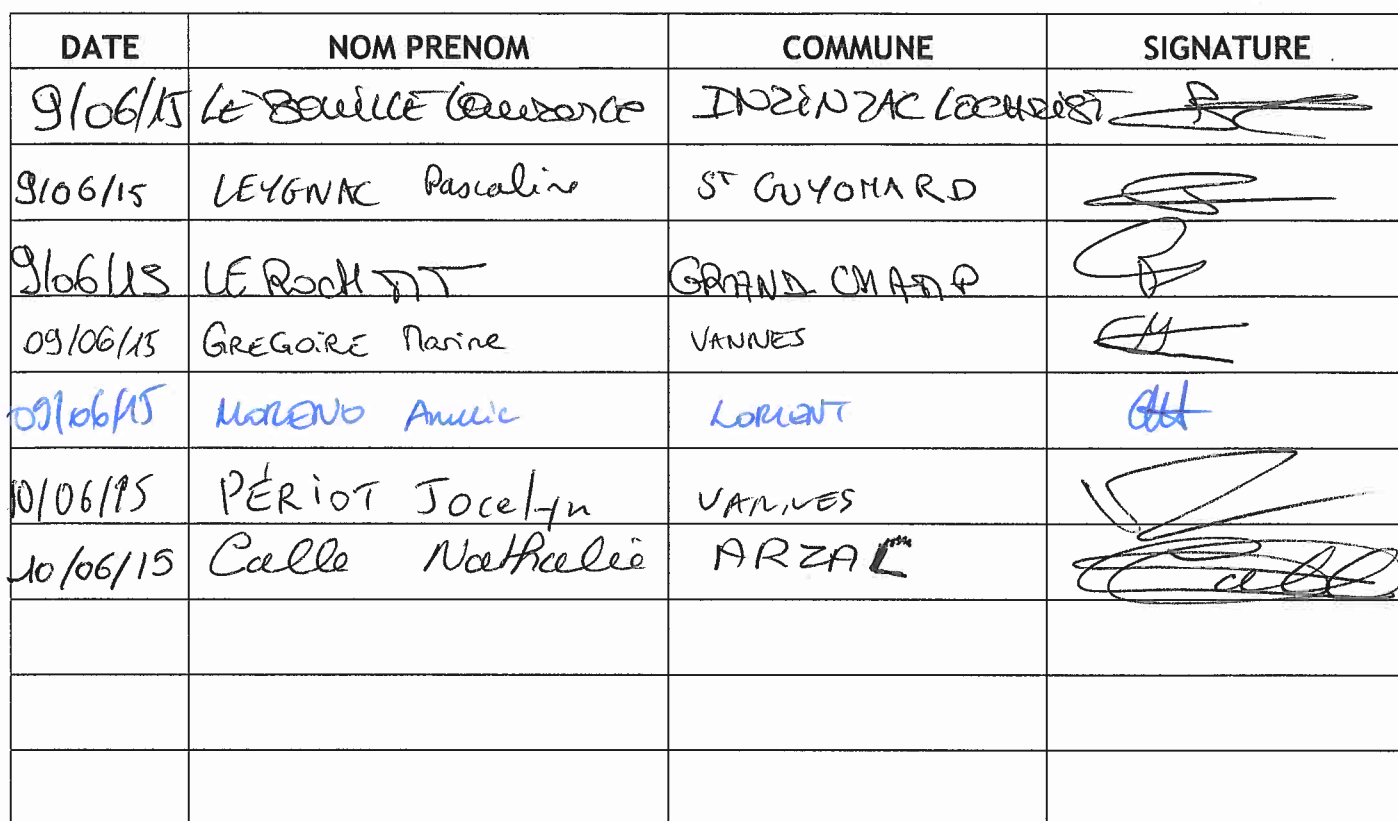 DATE NOM PRENOM COMMUNE SIGNATURE
9/06/15 LE BOUILLE Laurence INZINZAC LOCHRIST
9/06/15 LEYGNAC Pascaline ST GUYOMARD
9/06/15 LE ROCH GRAND CHAMP
09/06/15 GREGOIRE Marine VANNES
09/06/15 MORENO LORIENT
10/06/15 PÉRIOT Jocelyn VANNES
10/06/15 Calle Nathalie ARZAL